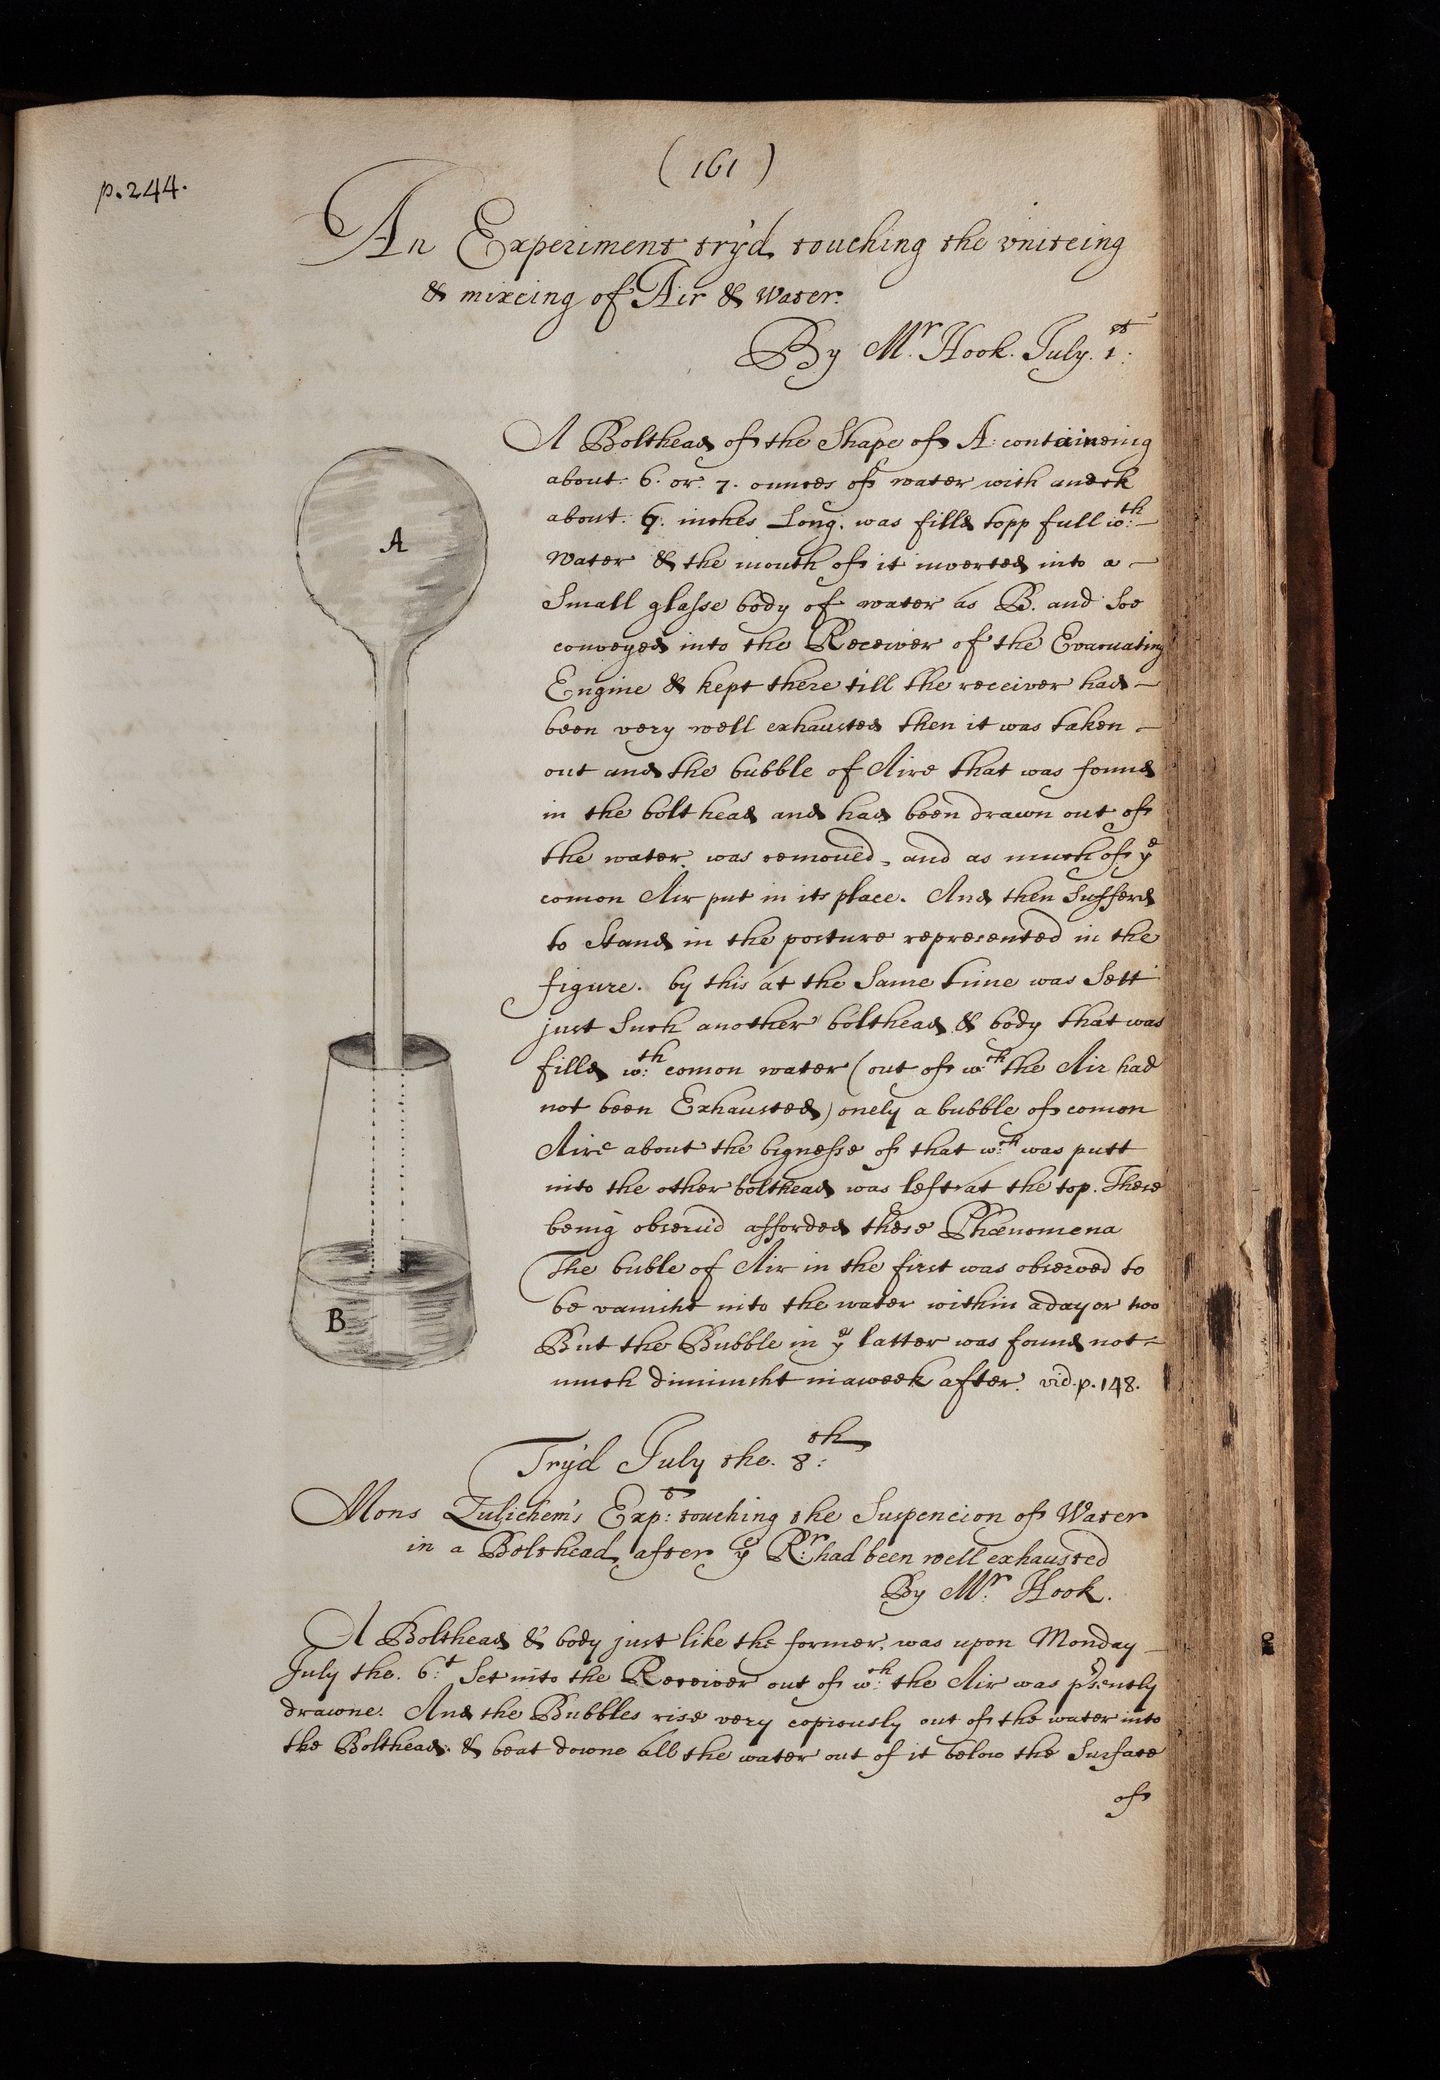 p. 244.
( 161 )
An Experiment try'd touching the vniteing
& mixeing of Air & Water.
By Mr. Hook. July. 1st:
A Bolthead of the Shape of A: containeing
about. 6. or. 7. ounces of water with a neck
about. 7. inches Long. was filld topp full wth: –
water & the mouth of it inverted into a –
Small glasse body of water as B. and Soe
conveyed into the Receiver of the Evacuating
Engine & kept there till the receiver had –
been very well exhausted then it was taken –
out and the bubble of Aire that was found
in the bolt head and had been drawn out of
the water was removed, and as much of ye
comon Air put in its place. And then Sufferd
to Stand in the posture represented in the
figure. by this at the Same time was Sett
just Such another bolthead & body that was
filld wth: comon water (out of wch the Air had
not been Exhausted) onely a bubble of comon
Aire about the bignesse of that wch: was putt
into the other bolthead was left at the top. These
being observ'd afforded these Phænomena
The buble of Air in the first was observed to
be vanisht into the water within a day or two
But the Bubble in ye latter was found not –
much diminisht in a week after. vid. p. 148.
Try'd July the. 8th:
Mons Zulichem's Expt: touching the Suspencion of Water
in a Bolthead, after ye Rr: had been well exhausted
By Mr. Hook.
A Bolthead & body just like the former, was upon Monday –
July the. 6t: Set into the Receiver out of wch: the Air was p'sently
drawne. And the Bubbles rise very copiously out of the water into
the Bolthead. & beat downe all the water out of it below the Surface
of
A
B